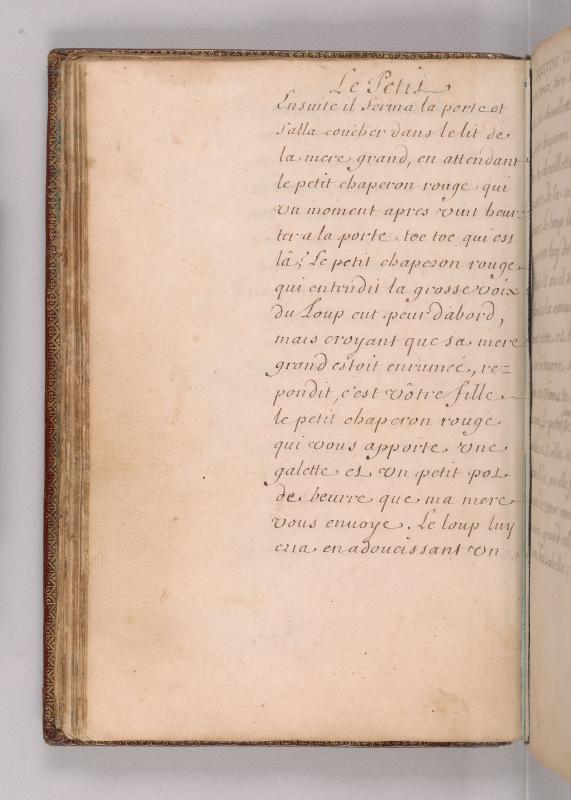 Le Petit
Ensuite il ferma la porte et
s'alla coucher dans le lit de
la mere grand, en attendant
le petit chaperon rouge qui
vn moment apres vint heur-
ter a la porte toc toc qui est
lâ? Le petit chaperon rouge
qui entendit la grosse voix
du Loup eut peur d'abord,
mais croyant que sa mere
grand estoit enrumée, re=
pondit, c'est vôtre fille
le petit chaperon rouge
qui vous apporte vne
galette et vn petit pot
de beurre que ma mere
vous enuoye. Le loup luy
cria en adoucissant vn